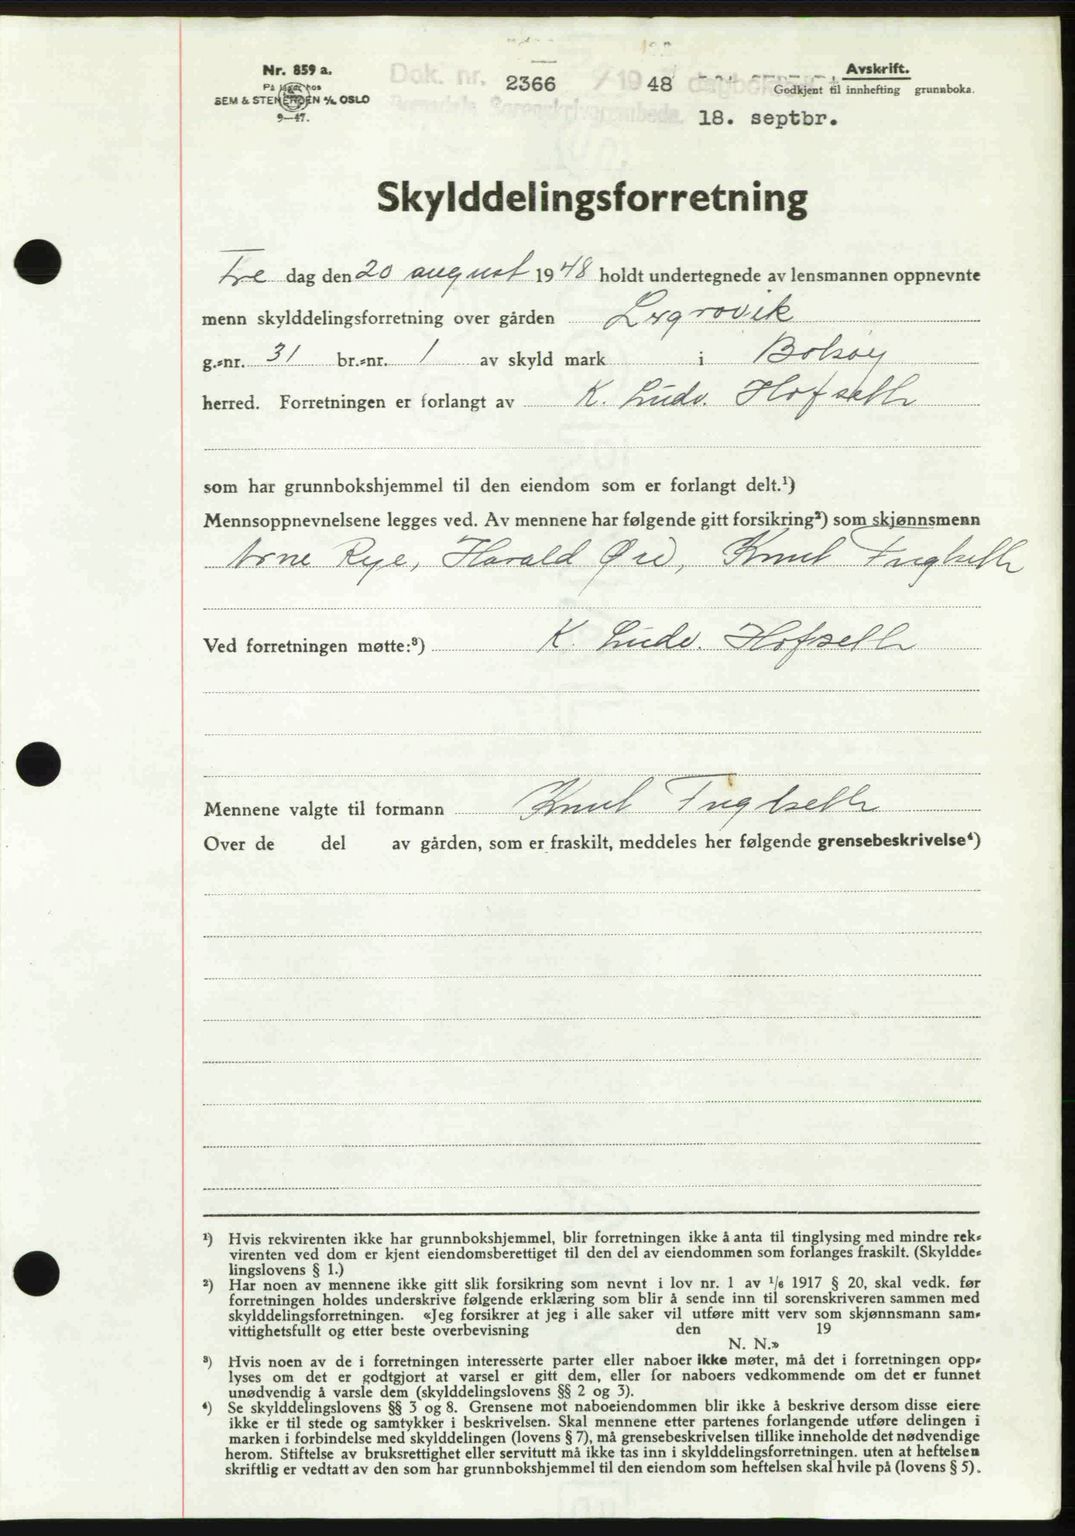 Nr. 859 a.
På lager hos
SEM & STENERSEN A/S OSLO
9—47.
Dok. nr. 2366 / 19 48 dagbok
Avskrift.
Godkjent til innhefting grunnboka.
Romsdals Sorenskriverembede.
18. septbr.
Skylddelingsforretning
Fre dag den 20 august 1948 holdt undertegnede av lensmannen oppnevnte
menn skylddelingsforretning over gården Lergrovik
g.-nr. 31 br.-nr. 1 av skyld mark i Bolsøy
herred. Forretningen er forlangt av K. Ludv. Hofseth
som har grunnbokshjemmel til den eiendom som er forlangt delt.¹)
Mennsoppnevnelsene legges ved. Av mennene har følgende gitt forsikring²) som skjønnsmenn
Arne Rye, Harald Øre, Knut Fuglseth
Ved forretningen møtte:³) K. Ludv. Hofseth
Mennene valgte til formann Knut Fuglseth
Over de del av gården, som er fraskilt, meddeles her følgende grensebeskrivelse⁴)
¹) Hvis rekvirenten ikke har grunnbokshjemmel, blir forretningen ikke å anta til tinglysing med mindre rek-
virenten ved dom er kjent eiendomsberettiget til den del av eiendommen som forlanges fraskilt. (Skyldde-
lingslovens § 1.)
²) Har noen av mennene ikke gitt slik forsikring som nevnt i lov nr. 1 av 1/6 1917 § 20, skal vedk. før
forretningen holdes underskrive følgende erklæring som blir å sende inn til sorenskriveren sammen med
skylddelingsforretningen. «Jeg forsikrer at jeg i alle saker vil utføre mitt verv som skjønnsmann sam-
vittighetsfullt og etter beste overbevisning den 19
N. N.»
³) Hvis noen av de i forretningen interesserte parter eller naboer ikke møter, må det i forretningen opp-
lyses om det er godtgjort at varsel er gitt dem, eller for naboers vedkommende om det er funnet
unødvendig å varsle dem (skylddelingslovens §§ 2 og 3).
⁴) Se skylddelingslovens §§ 3 og 8. Grensene mot naboeiendommen blir ikke å beskrive dersom disse eiere
ikke er til stede og samtykker i beskrivelsen. Skal mennene etter partenes forlangende utføre delingen i
marken i forbindelse med skylddelingen (lovens § 7), må grensebeskrivelsen tillike inneholde det nødvendige
herom. Stiftelse av bruksrettighet eller servitutt må ikke tas inn i skylddelingsforretningen. uten at heftelsen
skriftlig er vedtatt av den som har grunnbokshjemmel til den eiendom som heftelsen skal hvile på (lovens § 5).